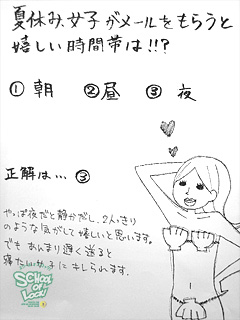 夏休み、女子がメールをもらうと
嬉しい時間帯は!!?
① 朝　② 昼　③ 夜
正解は… ③
やっぱ夜だと静かだし、2人っきり
のような気がして嬉しいと思います。
でも あんまり遅く送ると
寝たい女子にキレられます。
SCHOOL OF LOCK!